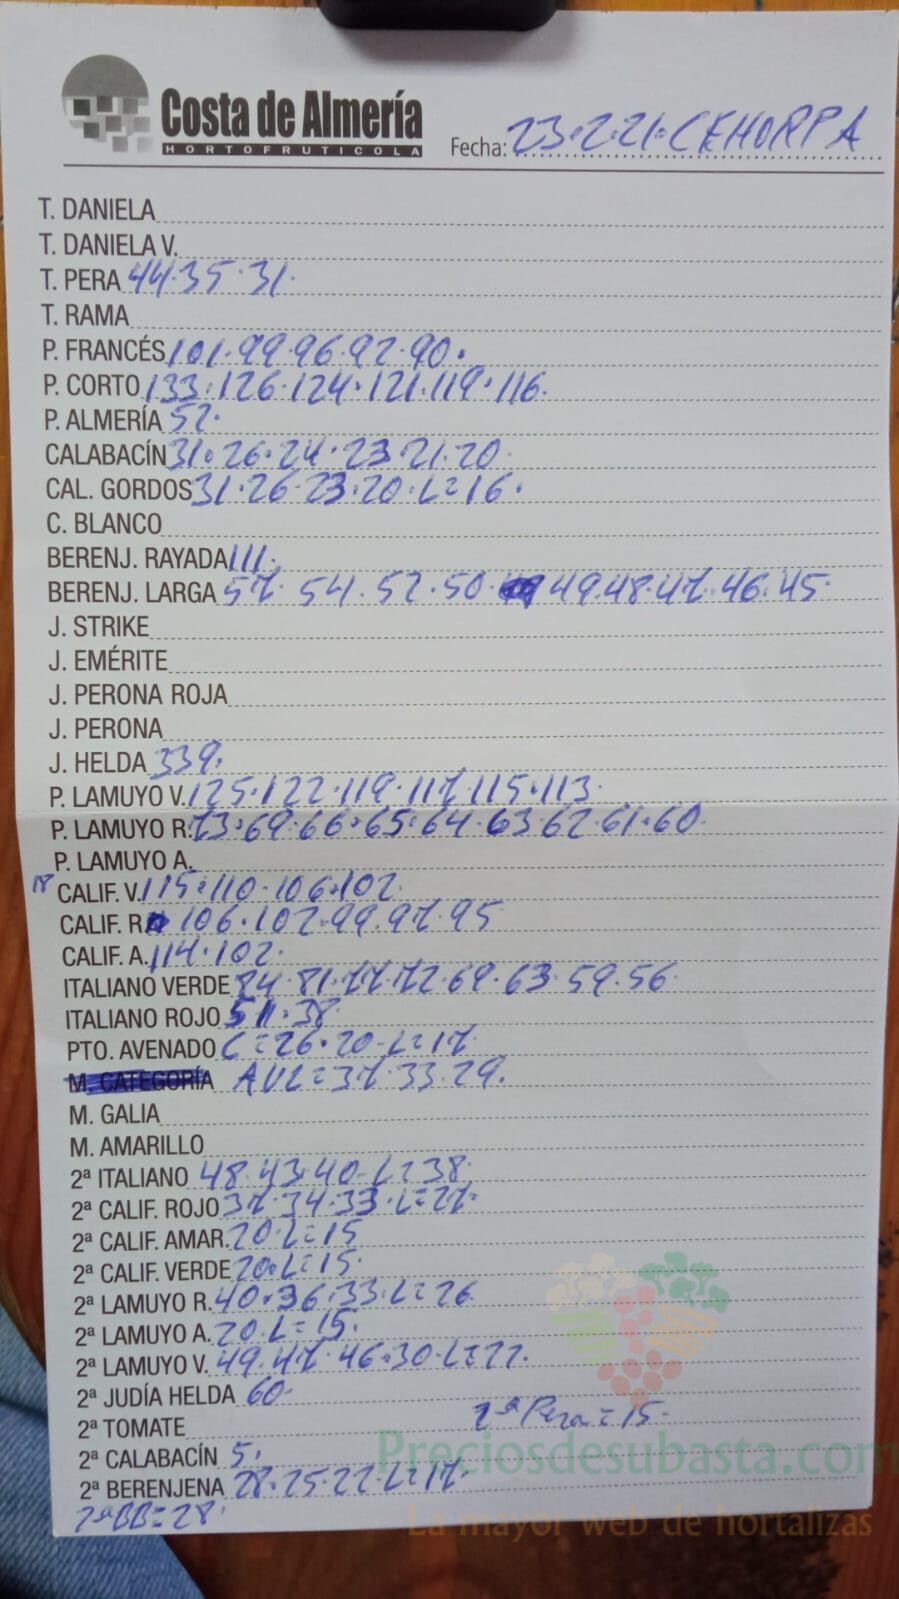 Costa de Almería
HORTOFRUTICOLA
Fecha: 23.2.21. CEHORPA
T. DANIELA
T. DANIELA V.
T. PERA 44.35.31.
T. RAMA
P. FRANCÉS 101.99.96.92.90.
P. CORTO 133.126.124.121.119.116.
P. ALMERÍA 52.
CALABACÍN 31.26.24.23.21.20.
CAL. GORDOS 31.26.23.20.L=16.
C. BLANCO
BERENJ. RAYADA 111.
BERENJ. LARGA 57.54.52.50.49.48.47.46.45.
J. STRIKE
J. EMÉRITE
J. PERONA ROJA
J. PERONA
J. HELDA 339.
P. LAMUYO V. 125.122.119.117.115.113.
P. LAMUYO R. 73.69.66.65.64.63.62.61.60.
P. LAMUYO A.
CALIF. V. 115.110.106.102.
CALIF. R. 106.102.99.97.95
CALIF. A. 114.102.
ITALIANO VERDE 84.81.77.72.69.63.59.56.
ITALIANO ROJO 38.
PTO. AVENADO C=26.20.L=17.
M. CATEGORÍA AVL=37.33.29.
M. GALIA
M. AMARILLO
2ª ITALIANO 48.43.40.L=38.
2ª CALIF. ROJO 37.34.33.L=27.
2ª CALIF. AMAR. 20.L=15
2ª CALIF. VERDE 20.L=15.
2ª LAMUYO R. 40.36.33.L=26.
2ª LAMUYO A. 20.L=15.
2ª LAMUYO V. 49.47.46.30.L=22.
2ª JUDÍA HELDA 60.
2ª TOMATE 2ª Pera=15.
2ª CALABACÍN 5.
2ª BERENJENA 28.25.22.L=17.
2ªBB=28.
Preciosdesubasta.com
La mayor web de hortalizas